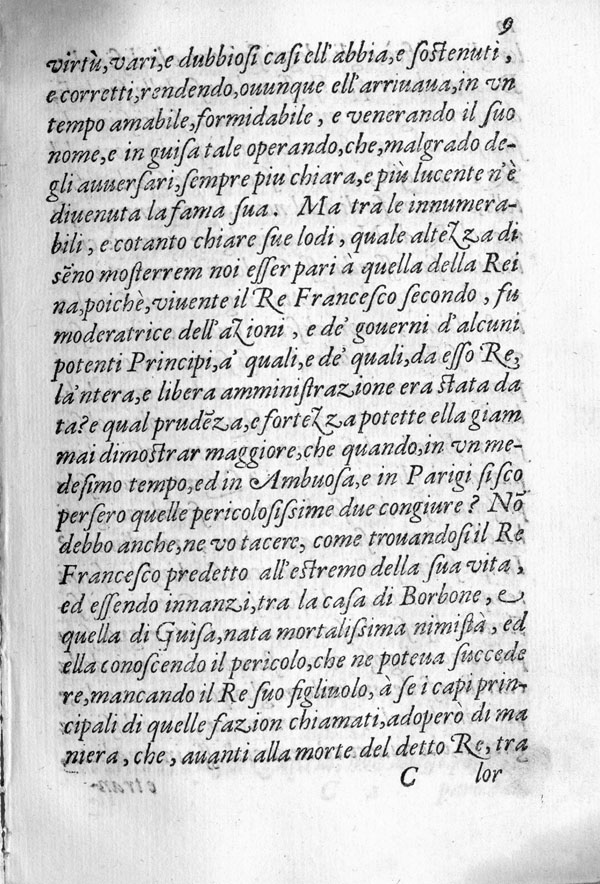 9
virtù, vari, e dubbiosi casi ell'abbia, e sostenuti,
e corretti, rendendo, ouunque ell'arriuaua, in vn
tempo amabile, formidabile, e venerando il suo
nome, e in guisa tale operando, che, malgrado de-
gli auuersari, sempre piu chiara, e più lucente n'è
diuenuta la fama sua. Ma tra le innumera-
bili, e cotanto chiare sue lodi, quale altezza di
sēno mosterrem noi esser pari à quella della Rei
na, poichè, viuente il Re Francesco secondo, fu
moderatrice dell'azioni, e de' gouerni d'alcuni
potenti Principi, a' quali, e de' quali, da esso Re,
la'ntera, e libera amministrazione era stata da
ta? e qual prudēza, e fortezza potette ella giam
mai dimostrar maggiore, che quando, in vn me-
desimo tempo, ed in Ambuosa, e in Parigi si sco
persero quelle pericolosissime due congiure? Nō
debbo anche, ne vo tacere, come trouandosi il Re
Francesco predetto all'estremo della sua vita,
ed essendo innanzi, tra la casa di Borbone, e
quella di Guisa, nata mortalissima nimistà, ed
ella conoscendo il pericolo, che ne poteua succede
re, mancando il Re suo figliuolo, à se i capi prin-
cipali di quelle fazion chiamati, adoperò di ma
niera, che, auanti alla morte del detto Re, tra
C lor